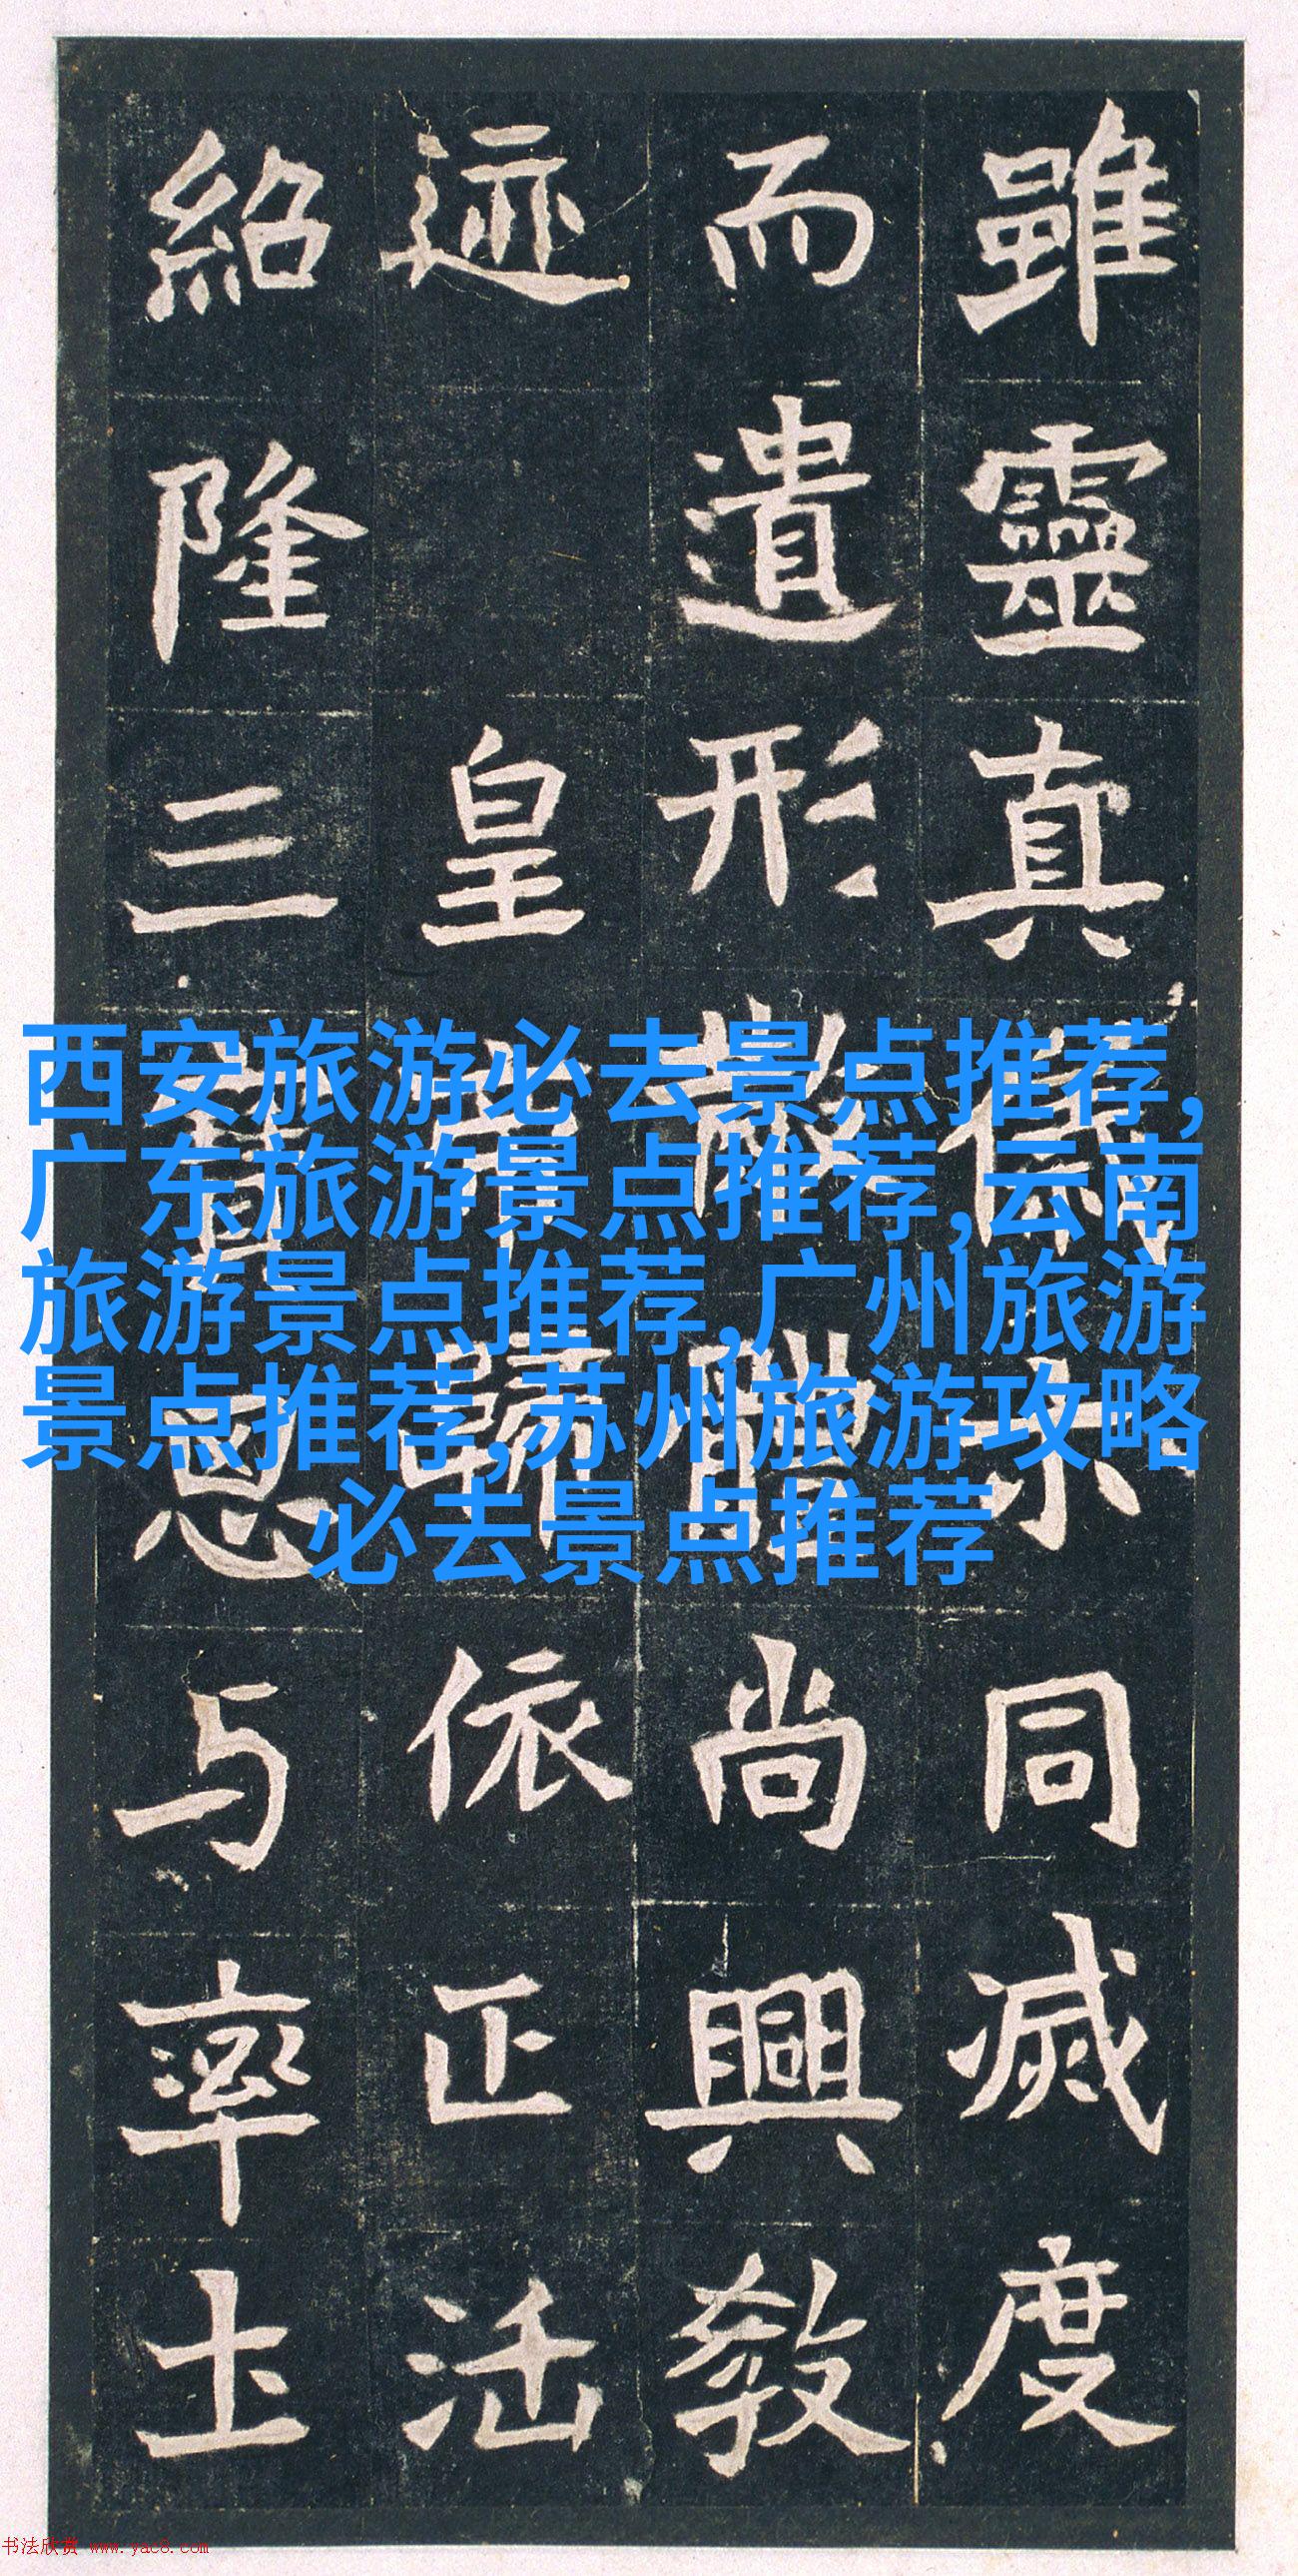 雖靈真儀不同滅度
而遺形散體尚興教
迹 皇帝歸依正法
紹隆三寶思与率土
西安旅游必去景点推荐,
广东旅游景点推荐,云南
旅游景点推荐,广州旅游
景点推荐,苏州旅游攻略
必去景点推荐
书法欣赏 www.yac8.com